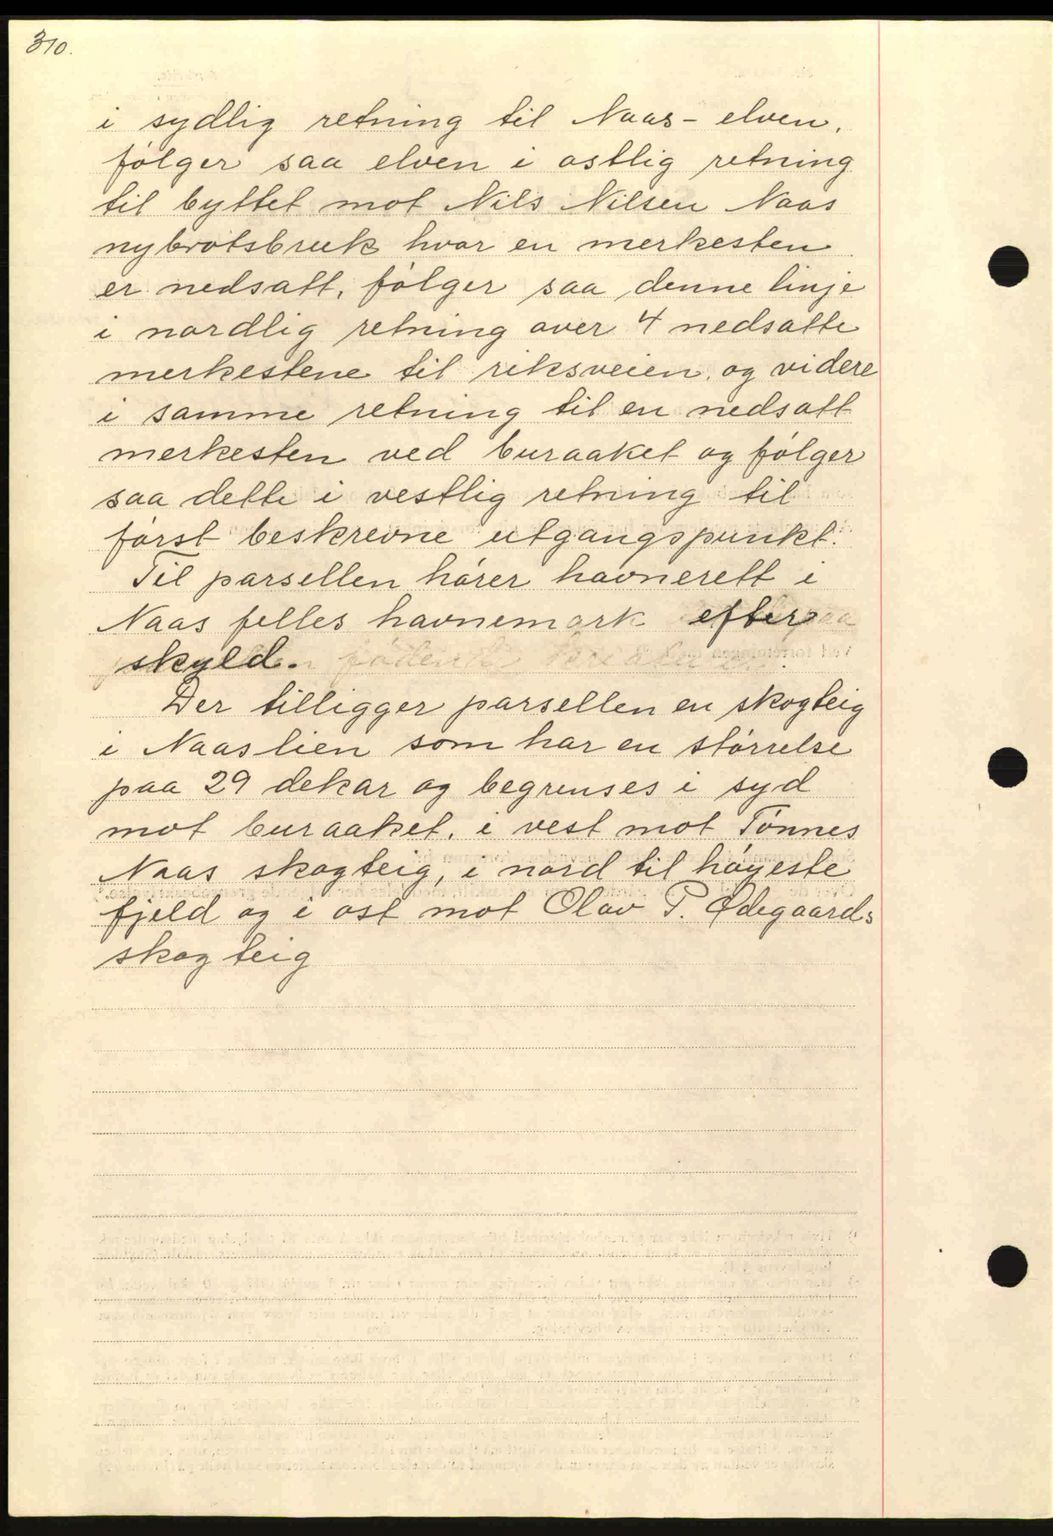 310.
i sydlig retning til Naas - elven,
følger saa elven i østlig retning
til byttet mot Nils Nilsen Naas
nybrotsbruk hvor en merkesten
er nedsatt, følger saa denne linje
i nordlig retning over 4 nedsatte
merkestene til riksveien, og videre
i samme retning til en nedsatt
merkesten ved buraaket og følger
saa dette i vestlig retning til
først beskrevne utgangspunkt.
Til parsellen hører havnerett i
Naas felles havnemark efter
skyld.
Der tilligger parsellen en skogteig
i Naaslien som har en størrelse
paa 29 dekar og begrenses i syd
mot buraaket, i vest mot Tønnes
Naas skogteig, i nord til høyeste
fjeld og i øst mot Olav P. Ødegaards
skogteig